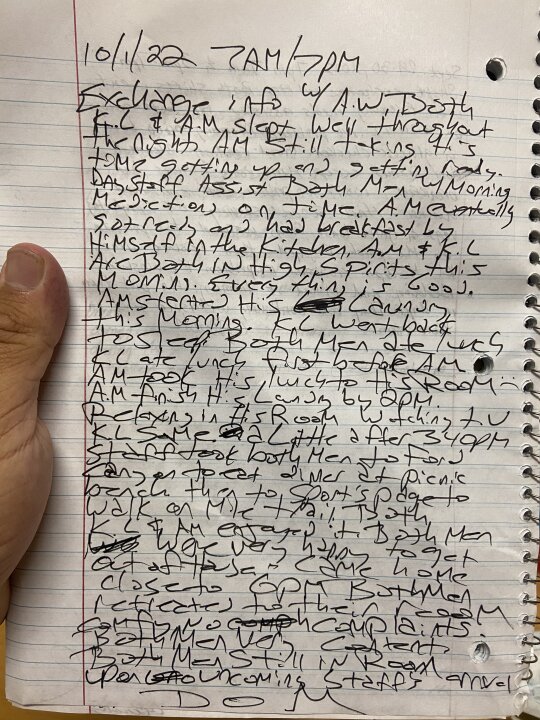 10/1/22 7AM/7PM
Exchange info w/ A.W. Both
K.L & A.M slept well throughout
the night. AM Still taking his
time getting up and getting ready.
Day Staff Assist Both Men w/ Morning
Medications on time. A.M eventually
got ready and had breakfast by
Himself in the Kitchen. A.M & K.L
Are Both in High Spirits this
Morning. Every thing is Good.
AM started His Laundry
this Morning. K.L Went back
to sleep. Both Men ate lunch
K L ate lunch first before AM
AM took His lunch to His Room
A.M finish His Laundry by 2PM
Relaxing in His Room Watching t.v
K.L Same a Little after 340pm
Staff took both Men to Ford
to eat dinner at picnic
bench then to Sports page to
walk on Mile trail. Both
K L & AM enjoyed it. Both Men
Were very happy to get
out of house. Came home
close to 6PM Both Men
retreated to their room
comfy no complaints.
Both Men very Content
Both Men Still in Room
upon oncoming Staff's arrival
D O M